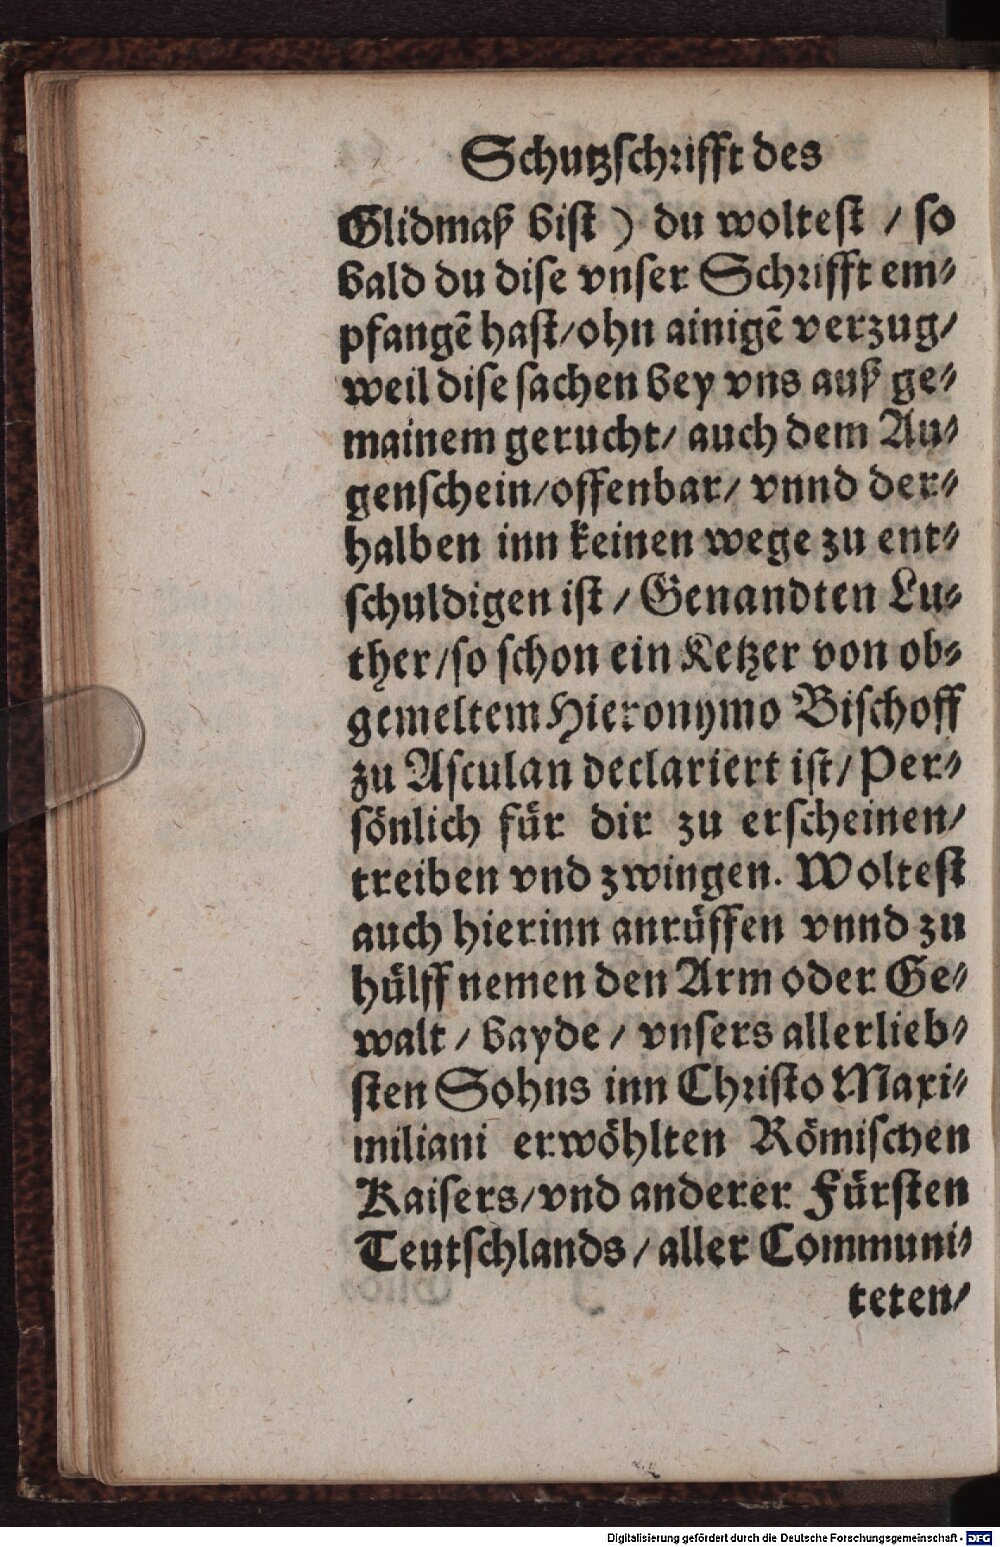 Schutzschrifft des
Glidmaß bist ) du woltest / so
bald du dise vnser Schrifft em⸗
pfangẽ hast/ohn ainigẽ verzug/
weil dise sachen bey vns auß ge⸗
mainem gerucht/ auch dem Au⸗
genschein/offenbar/ vnnd der⸗
halben inn keinen wege zu ent⸗
schuldigen ist / Genandten Lu⸗
ther/so schon ein Ketzer von ob⸗
gemeltem Hieronymo Bischoff
zu Asculan declariert ist/ Per⸗
sönlich für dir zu erscheinen/
treiben vnd zwingen. Woltest
auch hierinn anrüffen vnnd zu
hülff nemen den Arm oder Ge⸗
walt / bayde / vnsers allerlieb⸗
sten Sohns inn Christo Maxi⸗
miliani erwöhlten Römischen
Kaisers/vnd anderer Fürsten
Teutschlands / aller Communi⸗
teten/
Digitalisierung gefördert durch die Deutsche Forschungsgemeinschaft - DFG